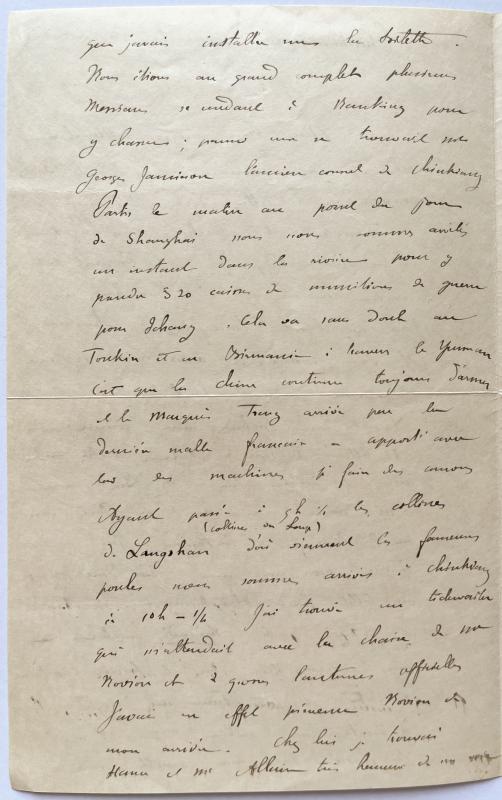 que j'avais installée vers la toilette.
Nous étions au grand complet plusieurs
Messieurs se rendant à Nanking pour
y chasser ; parmi eux se trouvait
Georges Jamieson l'ancien consul de Chinkiang
Partis le matin au point du jour
de Shanghai nous nous sommes arrêtés
un instant dans la rivière pour y
prendre 320 caisses de munitions de guerre
pour Ichang. Cela va sans doute au
Tonkin et en Birmanie à travers le Yunnan
C'est que la Chine continue toujours d'armer
et le Marquis Tseng arrivé par la
dernière malle française a apporté avec
lui des machines à faire des canons
Ayant passé à 5h ½ les collines
(collines du Loup)
de Langshan d'où viennent les fameuses
poules nous sommes arrivés à Chinkiang
à 10h - ¼ J'ai trouvé un tidewaiter
qui m'attendait avec la chaise de Mr
Novion et 2 grosses lanternes officielles
J'avais en effet prévenu Novion de
mon arrivée. Chez lui je trouvai
et Mr Allain très heureux de